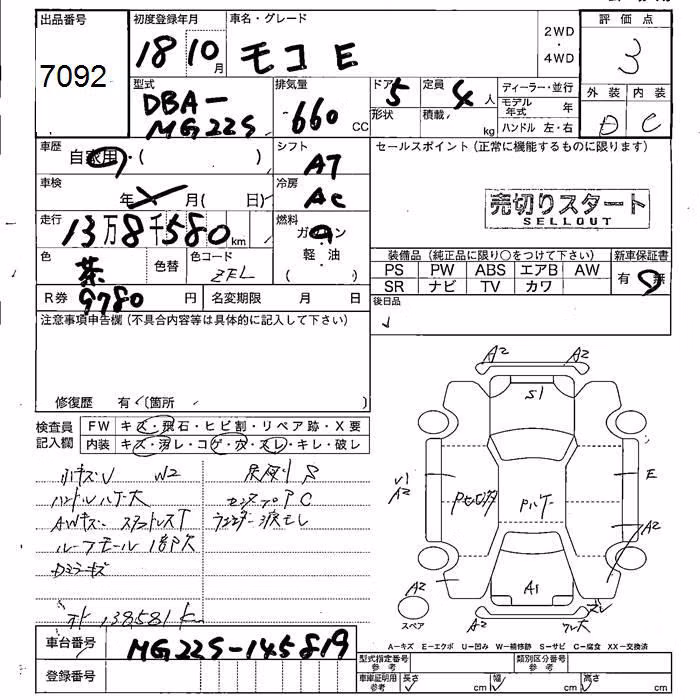 出品番号
7092
初度登録年月
18 10 月
車名・グレード
モコ E
2WD
・
4WD
評価点
3
外装 内装
D C
型式
DBA-
MG22S
排気量
660 CC
ドア 5
形状
定員 4 人
積載 kg
ディーラー・並行
モデル年式 年
ハンドル 左・右
車歴
自家用・( )
シフト
AT
車検
年 月( 日)
冷房
AC
走行
13万8千580 km
燃料
ガソリン
軽油
( )
色
茶
色替
色コード
ZFL
R券 9780 円
名変期限 月 日
セールスポイント (正常に機能するものに限ります)
売切りスタート
SELLOUT
装備品 (純正品に限り○をつけて下さい)
PS PW ABS エアB AW
SR ナビ TV カワ
新車保証書
有・無
後日品
注意事項申告欄 (不具合内容等は具体的に記入して下さい)
修復歴 有 (箇所 )
検査員
記入欄
FW キズ・飛石・ヒビ割・リペア跡・X要
内装 キズ・汚レ・コゲ・穴・スレ・キレ・破レ
W2
ハンドルハゲ大
AWキズ
ルーフモール 1部欠
Dミラーキズ
138,581 km
車台番号
MG22S-145819
登録番号
A2 A2
S1
A2
E
A2
A2
A1
A2
A2
スペア
A-キズ E-エクボ U-凹み W-補修跡 S-サビ C-腐食 XX-交換済
型式指定番号
参考
類別区分番号
参考
車庫証明用
参考
長さ cm
幅 cm
高さ cm